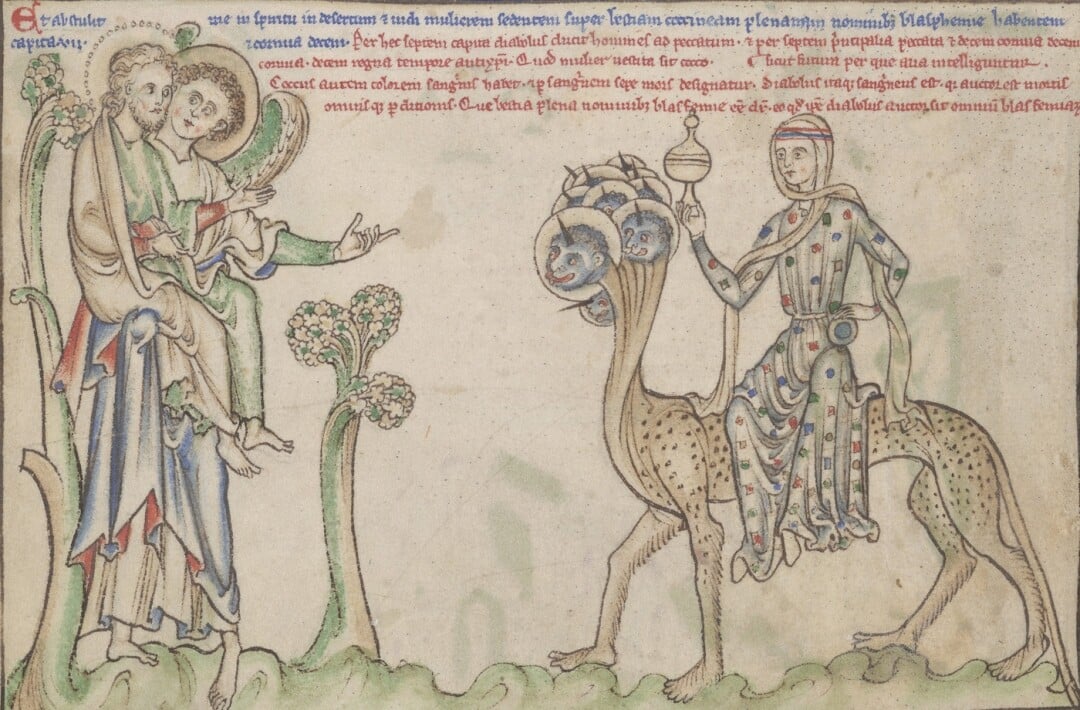 Et abstulit me in spiritu in desertum & uidi mulierem sedentem super bestiam coccineam plenam nominibꝫ blasphemie habentem
capita .vii. & cornua decem. Per hec septem capita diabolus ducit homines ad peccatum. & per septem principalia peccata & decem cornua decem
cornua. decem regna tempore antixpi. Quod mulier uestita sit cocco.
Coccus autem colorem sanguis habet. & per sanguinem sepe mors designatur. Diabolus itaqꝫ sanguineus est. qui auctor est mortis
omnisqꝫ perditionis. Que bestia plena nominibꝫ blasfemie diabolus auctor sit omnium blasfemiarum